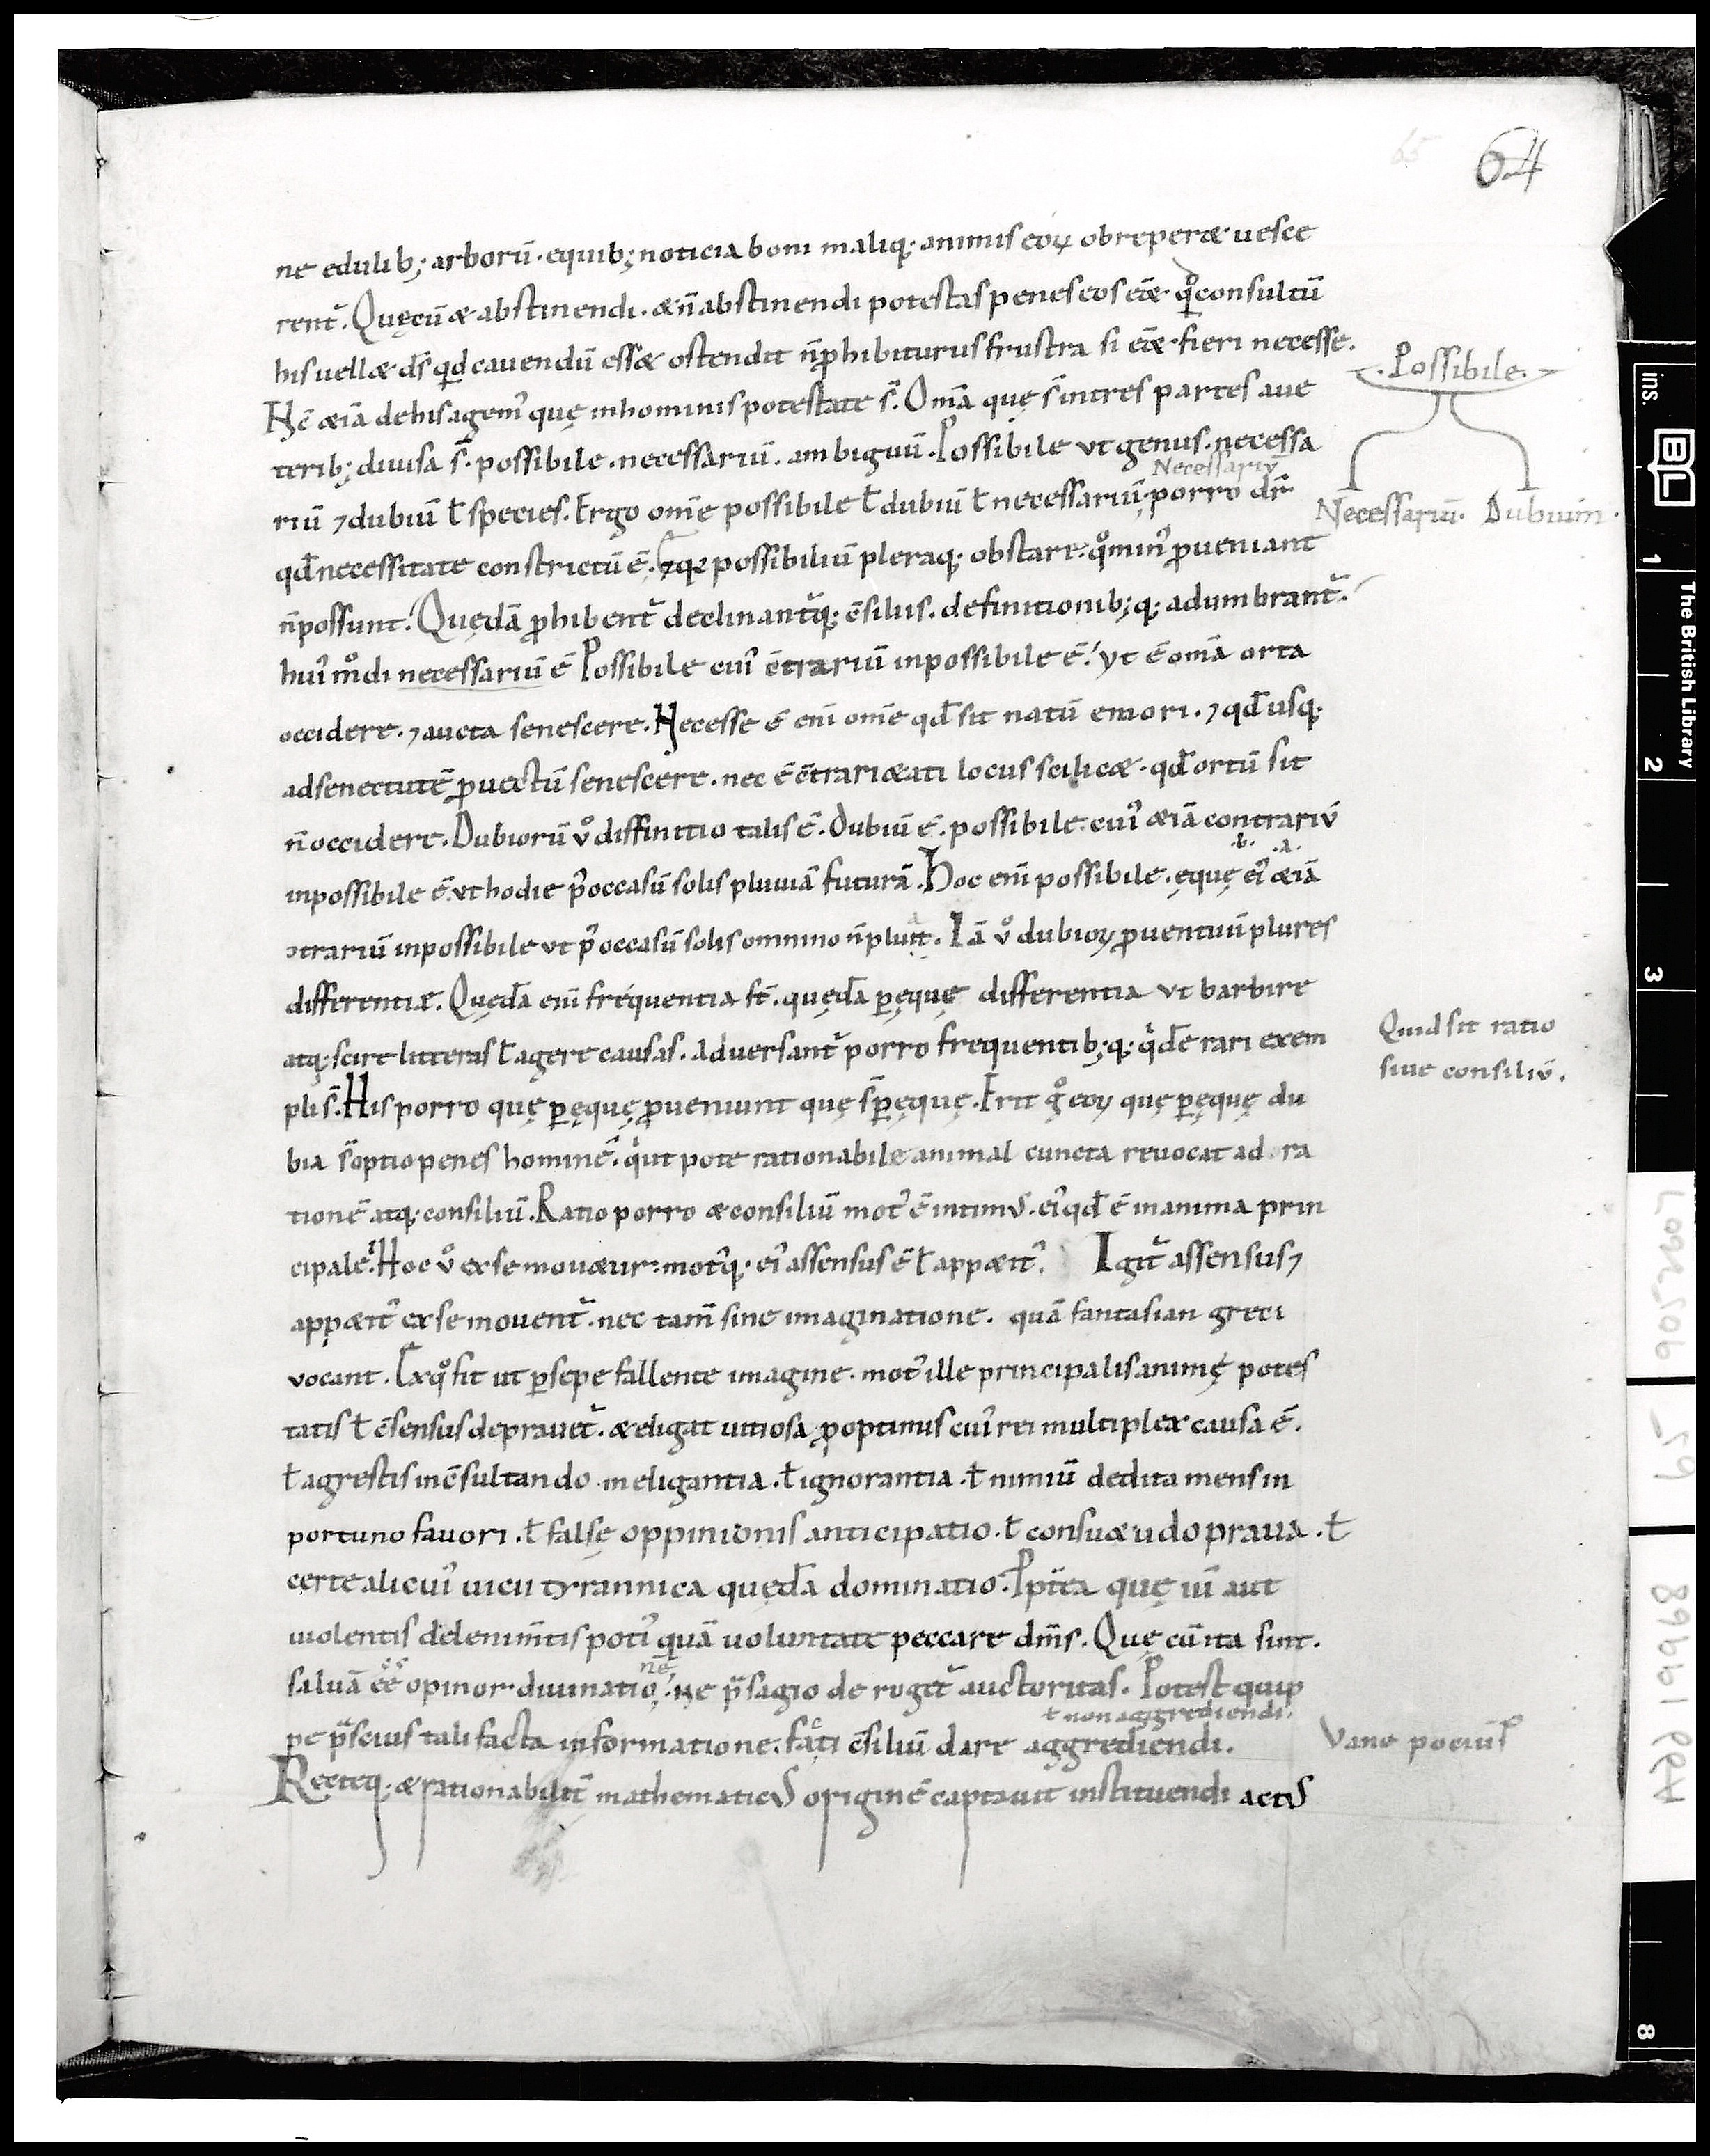 64
ne edulib; arborū. equib; noticia boni maliq; animis eoꝝ obreperæ uesce
rent᷑. Quęcū æ abstinendi. æ n̄ abstinendi potestas penes eos eēæ. qͦ consultū
his uellæ d̄s qd cauendū essæ ostendit n̄ ꝓhibiturus frustra si eēæ fieri necesse.
Hc̄ æiā de his agemꝰ quę in hominis potestate s̄. Om̄a quę s̄ in tres partes aue
terib; diuisa s̄. possibile. necessariū. ambiguū. Possibile vt genus. necessa
Necessariū
riū ⁊ dubiū ł species. Ergo om̄e possibile ł dubiū ł necessariū. porro dr̄
qđ necessitate constrictū ē. possibiliū pleraq; obstare. qͦminꝰ ꝓueniant
n̄ possunt. Quędā ꝓhibent᷑ declinant᷑q; c̄siliis. definitionib; q; adumbrant᷑.
huiꝰ mͦdi necessariū ē Possibile cuiꝰ c̄trariū inpossibile ē. vt ē om̄a orta
occidere. ⁊ aucta senescere. Necesse ē eni om̄e qđ sit natū emori. ⁊ qđ usq;
ad senectutē ꝓuectū senescere. nec ē c̄trariæati locus scilicæ. qđ ortū sit
n̄ occidere. Dubiorū vͦ diffinitio talis ē. Dubiū ē. possibile. cuiꝰ æiā contrariū
.b. .a.
inpossibile ē. vt hodie p̄ occasū solis pluuiā futurā. Hoc eni possibile. ęquę eiꝰ æiā
ↄtrariū inpossibile vt p̄ occasū solis omnino n̄ pluat. Iā vͦ dubioꝝ ꝓuentuū plures
differentiæ. Quędā eni frequentia s̄t. quędā ꝑęquę differentia vt barbire
atq; scire litteras ł agere causas. Aduersant᷑ porro frequentib; q; qͥ đe rari exem
pli s̄. His porro quę ꝑęquę ꝓueniunt quę s̄ꝑęquę. Erit gͦ eoꝝ quę ꝑęquę du
bia s̄ optio penes hominē. qͥ ut pote rationabile animal cuncta reuocat ad ra
tionē atq; consiliū. Ratio porro æ consiliū motꝰ ē intimꝰ. eiꝰ qđ ē in anima prin
cipale. Hoc vͦ ex se mouætur. motꝰq; eiꝰ assensus ē ł appætitꝰ. Igit᷑ assensus ⁊
appætitꝰ ex se mouent᷑. nec tam̄ sine imaginatione. quā fantasian greci
vocant. Ex qͦ fit ut ꝑsepe fallente imagine. motꝰ ille principalis animę potes
tatis ł c̄sensus deprauet᷑. æ eligat uitiosa ꝓ optimis cuiꝰ rei multiplex causa ē.
ł agrestis in c̄sultando ineligantia. ł ignorantia. ł nimiū dedita mens in
portuno fauori. ł falsę oppinionis anticipatio. ł consuætudo praua. ł
certe alicuiꝰ uicii tyrannica quędā dominatio. Ipt̄ea quę ui aut
uiolentis delenim̄tis potiꝰ quā voluntate peccare dm̄s. Quę cū ita sint.
nē
saluā eē opinor diuinatio. ne p̄sagio de roget᷑ auctoritas. Potest quip
ł non aggrediendi.
pe p̄scius tali facta informatione. facti c̄siliū dare aggrediendi.
Recteq; æ rationabilit̄ mathematicꝰ originē captauit instituendi actꝰ
.Possibile.
Necessariū. Dubium.
Quid sit ratio
siue consiliū.
Vane pocius
ins.
BL
The British Library
1
2
3
8